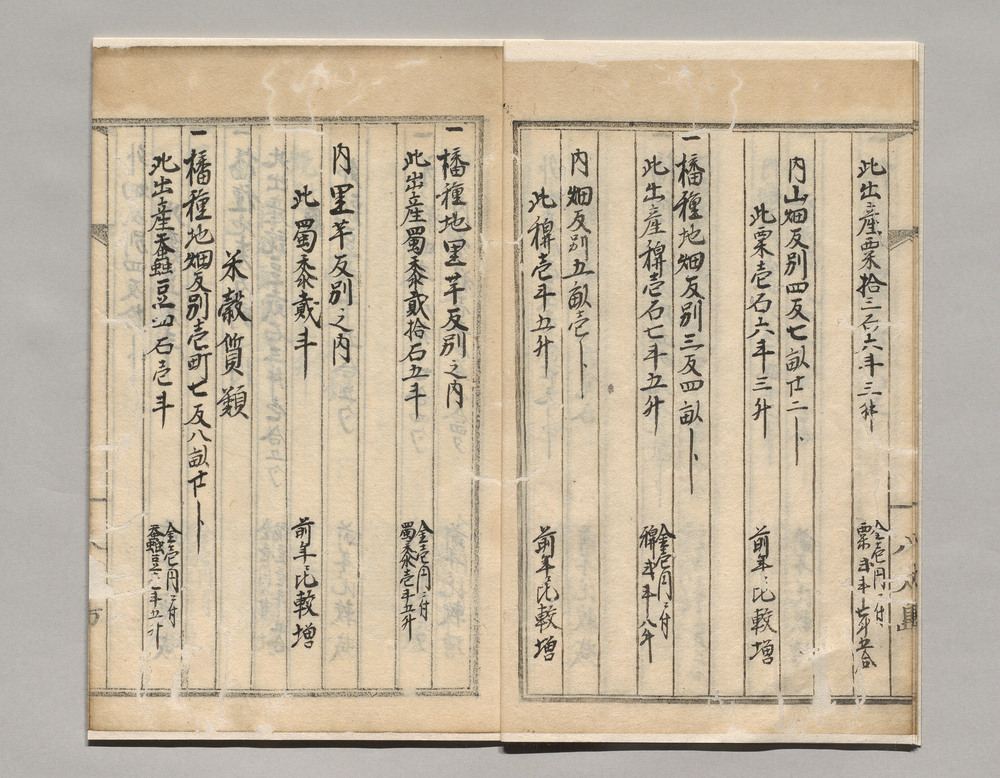 此出産粟拾三石六斗三升
金壱円ニ付
粟弐斗
内山畑反別四反七畝廿二ト
此粟壱石六斗三升
前年ニ比較増
一播種地畑反別三反四畝ト
此出産稗壱石七斗五升
金壱円ニ付
稗弐斗八升
内畑反別五畝壱ト
此稗壱斗五升
前年ニ比較増
一播種地里芋反別之内
此出産蜀黍貮拾石五斗
金壱円ニ付
蜀黍壱斗五升
内里芋反別之内
此蜀黍貮斗
前年ニ比較増
米穀質類
一播種地畑反別壱町七反八畝廿ト
此出産蚕豆四石壱斗
金壱円ニ付
蚕豆壱斗五升